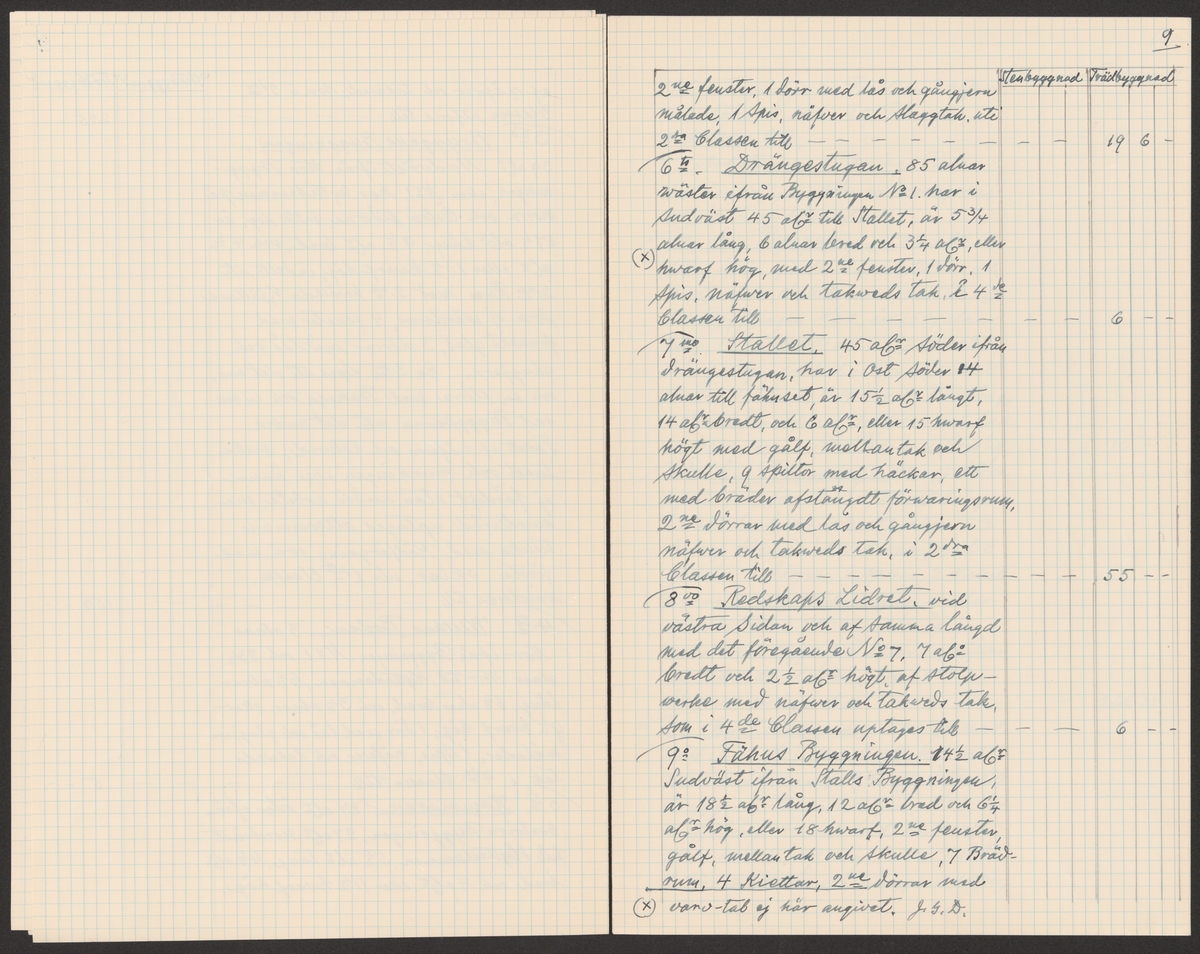 9
Stenbyggnad Trädbyggnad
2ne fenster, 1 dörr med lås och gångjern
målade, 1 Spis, näfwer och slaggtak. uti
2ra Classen till — — — — — — — — 19 6 -
6to. Drängestugan, 85 alnar
wäster ifrån Byggningen No 1. har i
Sudväst 45 alnr till Stallet, är 5 3/4
alnar lång, 6 alnar bred och 3 1/4 alnr, eller
(x) hwarf hög, med 2ne fenster, 1 dörr, 1
Spis, näfwer och takweds tak, i 4de
Classen till — — — — — — — — 6 - -
7mo. Stallet, 45 alnr söder ifrån
drängestugan, har i Ost Söder 14
alnar till fähuset, är 15 1/2 alnr långt,
14 alnr bredt, och 6 alnr, eller 15 hwarf
högt med gålf, mellantak och
skulle, 9 spiltor med häckar, ett
med bräder afstängdt förwaringsrum,
2ne dörrar med lås och gångjern
näfwer och takweds tak, i 2dra
Classen till — — — — — — — — 55 - -
8vo Redskaps Lidret, vid
västra Sidan och af samma långd
med det föregående No 7, 7 alnr
bredt och 2 1/2 alnr högt, af stolp-
werke med näfwer och takweds tak,
som i 4de Classen uptages till — — — — 6 - -
9o Fähus Byggningen. 14 1/2 alnr
Sudväst ifrån Stalls Byggningen,
är 18 1/2 alnr lång, 12 alnr bred och 6 1/4
alnr hög, eller 18 hwarf, 2ne fenster,
gålf, mellantak och skulle, 7 Bräd-
rum, 4 Kiettar, 2ne dörrar med
(x) varv-tal ej här angivet. J. G. D.